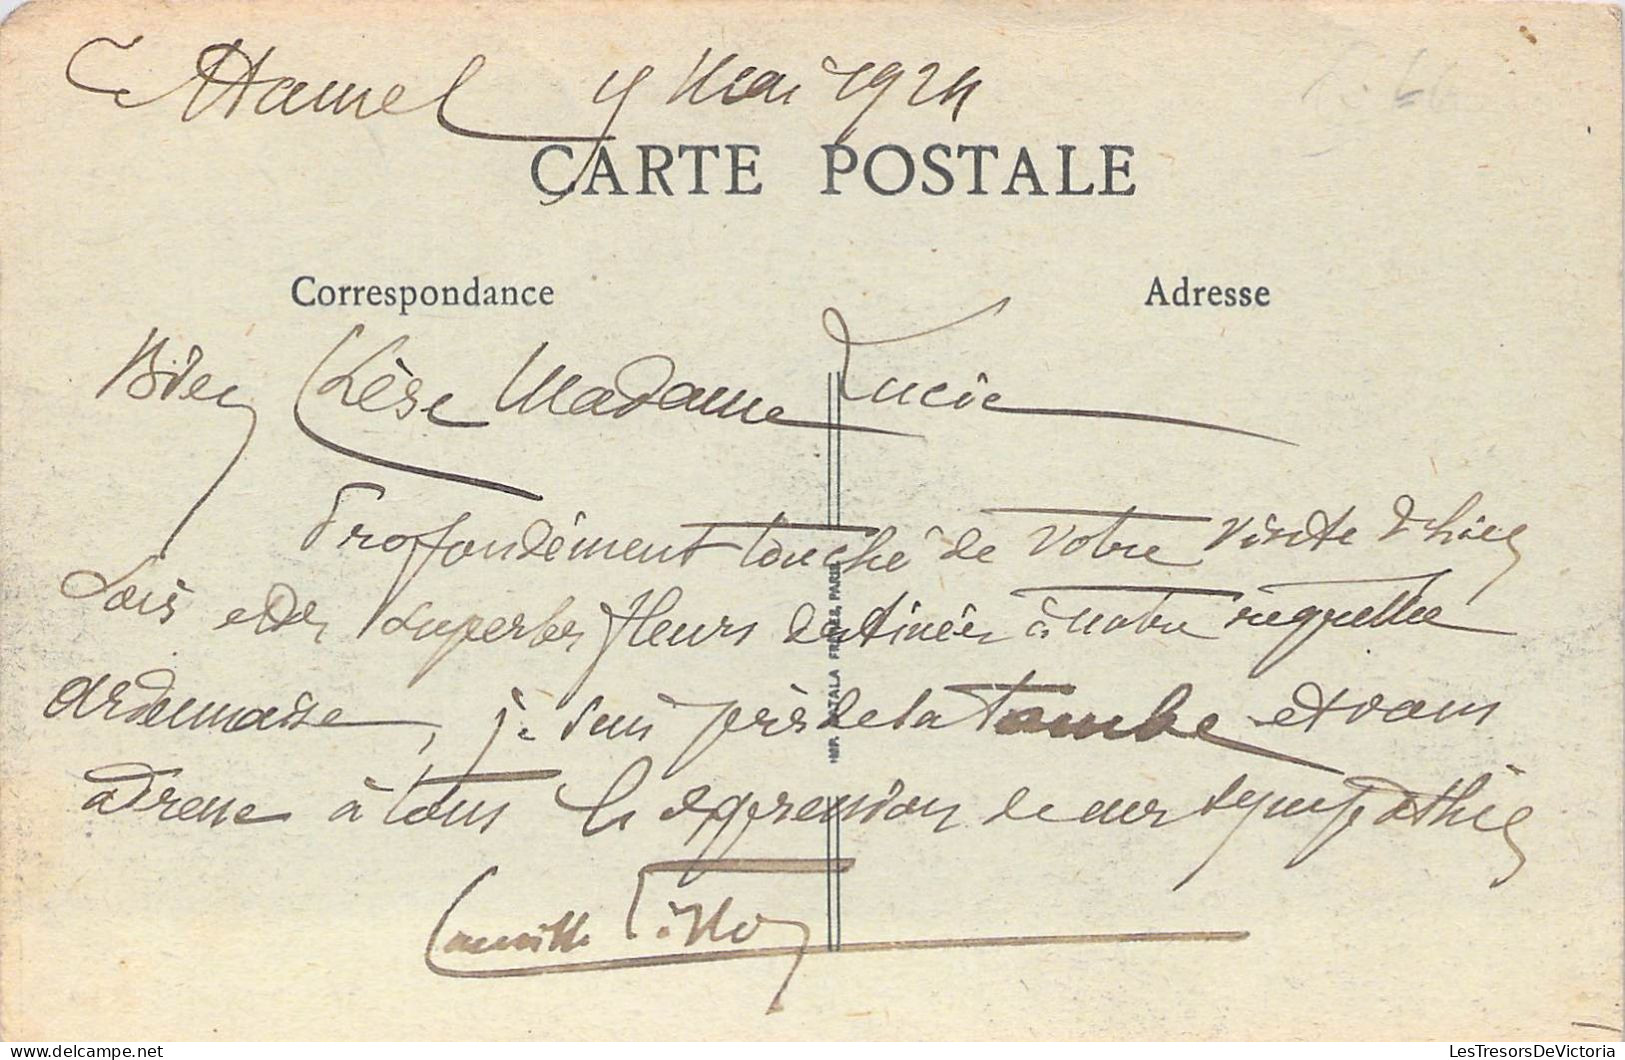 Hamel 9 Mai 1924
CARTE POSTALE
Correspondance
Adresse
Bien Chère Madame Lucie
Profondément touché de votre visite d'hier
soir et des superbes fleurs destinées à notre regrettée
ardennaise, je suis près de la tombe et vous
adresse à tous l'expression de ma sympathie
Camille
IMP. CATALA FRÈRES, PARIS
LesTresorsDeVictoria